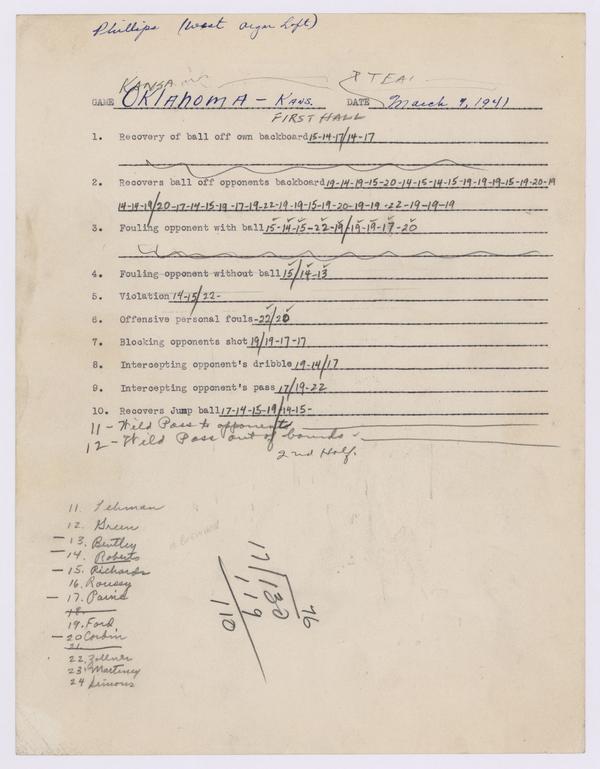 Phillips (West Organ Loft)
KANSA
& TEA
GAME OKlahoma - Kans. DATE March 7, 1941
FIRST HALF
1. Recovery of ball off own backboard 15-14-17/14-17
2. Recovers ball off opponents backboard 19-14-19-15-20-14-15-14-15-19-19-19-15-19-20-19
14-14-19/20-17-14-15-19-17-19-22-19-19-15-19-20-19-19-22-19-19-19
3. Fouling opponent with ball 15-14-15-22-19/19-19-17-20
4. Fouling opponent without ball 15/14-13
5. Violation 14-15/22-
6. Offensive personal fouls -22/20
7. Blocking opponents shot 19/19-17-17
8. Intercepting opponent's dribble 19-14/17
9. Intercepting opponent's pass 17/19-22
10. Recovers Jump ball 17-14-15-19/19-15-
11 - Wild Pass to opponents
12 - Wild Pass out of bounds -
2nd Half.
11. Lehman
12. Green
- 13. Bentley
- 14. Roberts
- 15. Richards
16. Roussy
- 17. Paine
18.
19. Ford
- 20 Corbin
21.
22. Zollner
23. Martiney
24 Simons
17/132 76
119
110